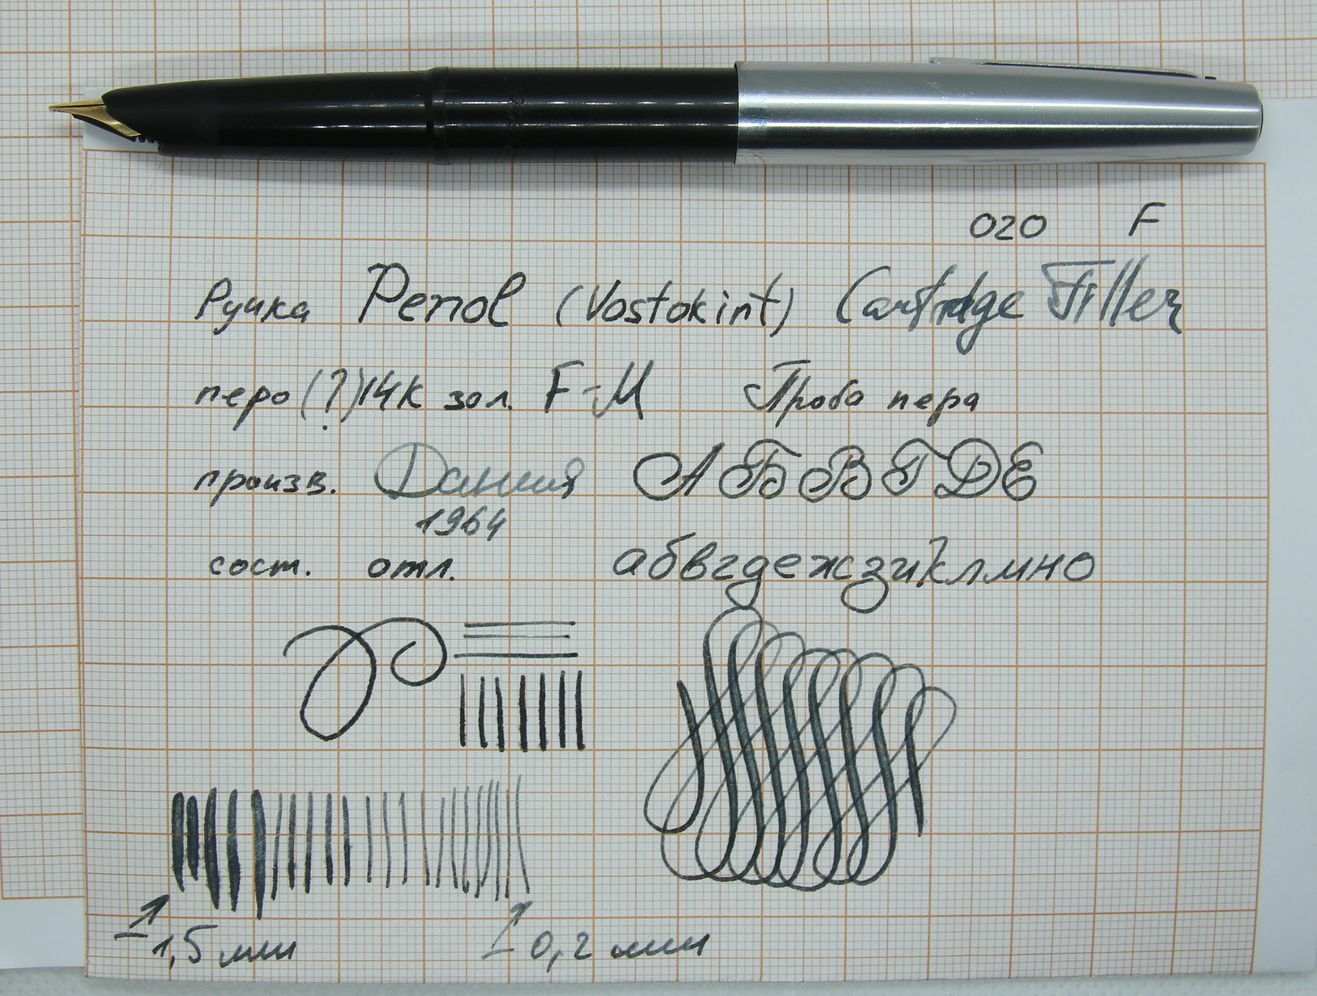 020 F
Ручка Penol (Vostokint) Cartridge Filler
перо (?) 14К зол. F-M Проба пера
произв. Дания А Б В Г Д Е
1964
сост. отл. абвгдежзиклмно
1,5 мм 0,2 мм